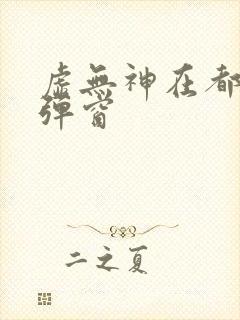 虚無神在都
彈窗
二之夏